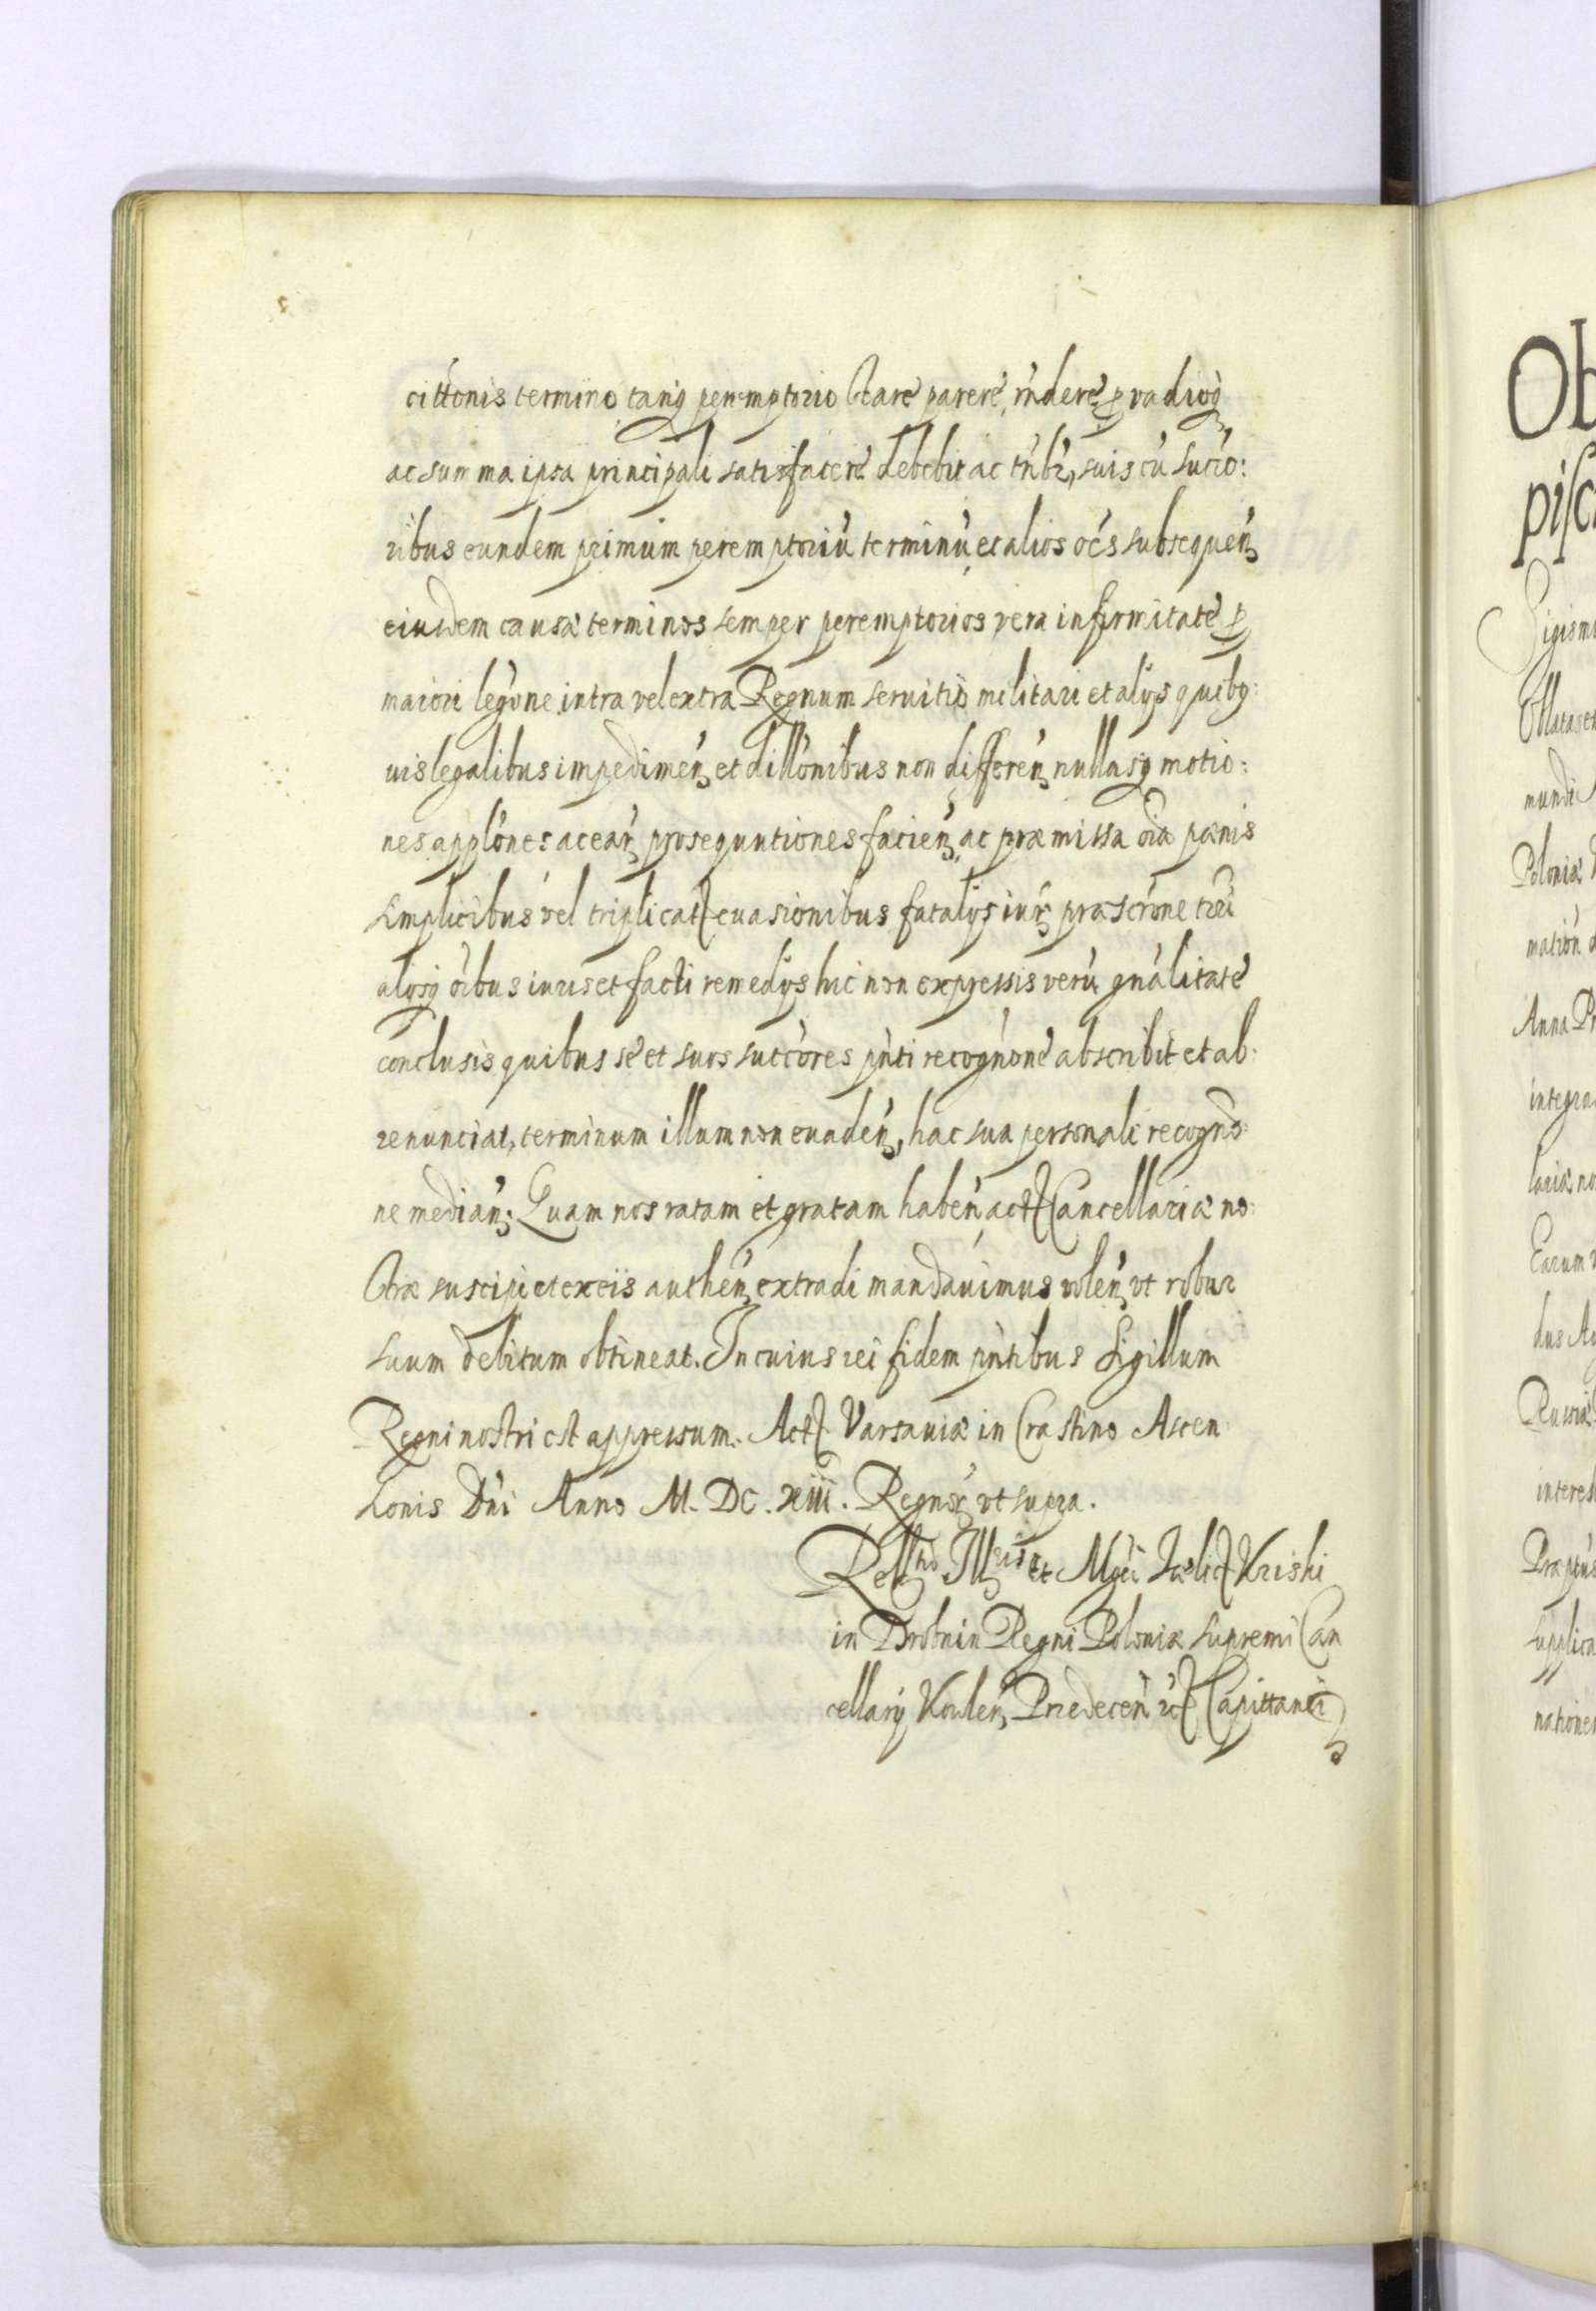 cittonis termino tanq peremptorio stare parere, rndere, p vadioq
ac summa ipsa principali satisfacere debebit ac tnbr, suis cu succo:
ribus eundem primum peremptoriu terminu, et alios oes subsequen
eiusdem causæ terminos semper peremptorios vera infirmitate p
maiori legone intra vel extra Regnum seruitio militari et alijs quibq:
uis legalibus impedimen et dillonibus non differen nullasq motio:
nes applones ac ear prosequutiones facien, ac præmissa oia pænis
simplicibus vel triplicat euasionibus fatalijs iur præscrone trei
alijsq oibus iuris et facti remedijs hic non expressis veru gnalitate
conclusis quibus se et suos succores pnti recognone abscribit et ab:
renunciat, terminum illum non euaden, hac sua personali recogno:
ne median. Quam nos ratam et gratam haben act Cancellariæ no:
stræ suscipi et ex eis authen extradi mandauimus volen vt robur
suum debitum obtineat. In cuius rei fidem pntibus Sigillum
Regni nostri est appressum. Act Varsauiæ in Crastino Ascen
sionis Dni Anno M. DC. XIII. Regnor vt supra.
Rell Ill et Mgci Fælic Kriski
in Drobnin Regni Poloniæ supremi Can
cellarij Kowlen, Predecen ꝛc Capittanei
Ob
pisc
Sigism
Oblata
mundi
Poloniæ
mation
Anna
integra
lariæ no
Earum
dus
Russiæ
interes
Præptus
supplica
nationem